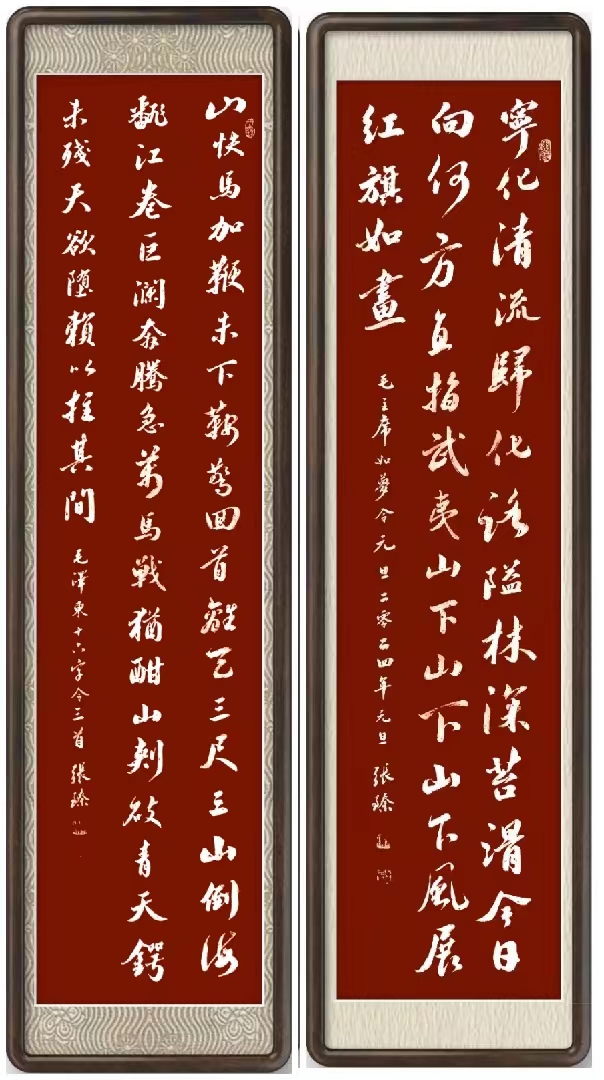 寧化清流歸化路隘林深苔滑今日
向何方直指武夷山下山下山下風展
紅旗如畫
毛主席如夢令元旦二零二四年元旦 張臻
山快馬加鞭未下鞍驚回首離天三尺三山倒海
翻江卷巨瀾奔騰急萬馬戰猶酣山刺破青天鍔
未殘天欲墮賴以拄其間 毛澤東十六字令三首 張臻